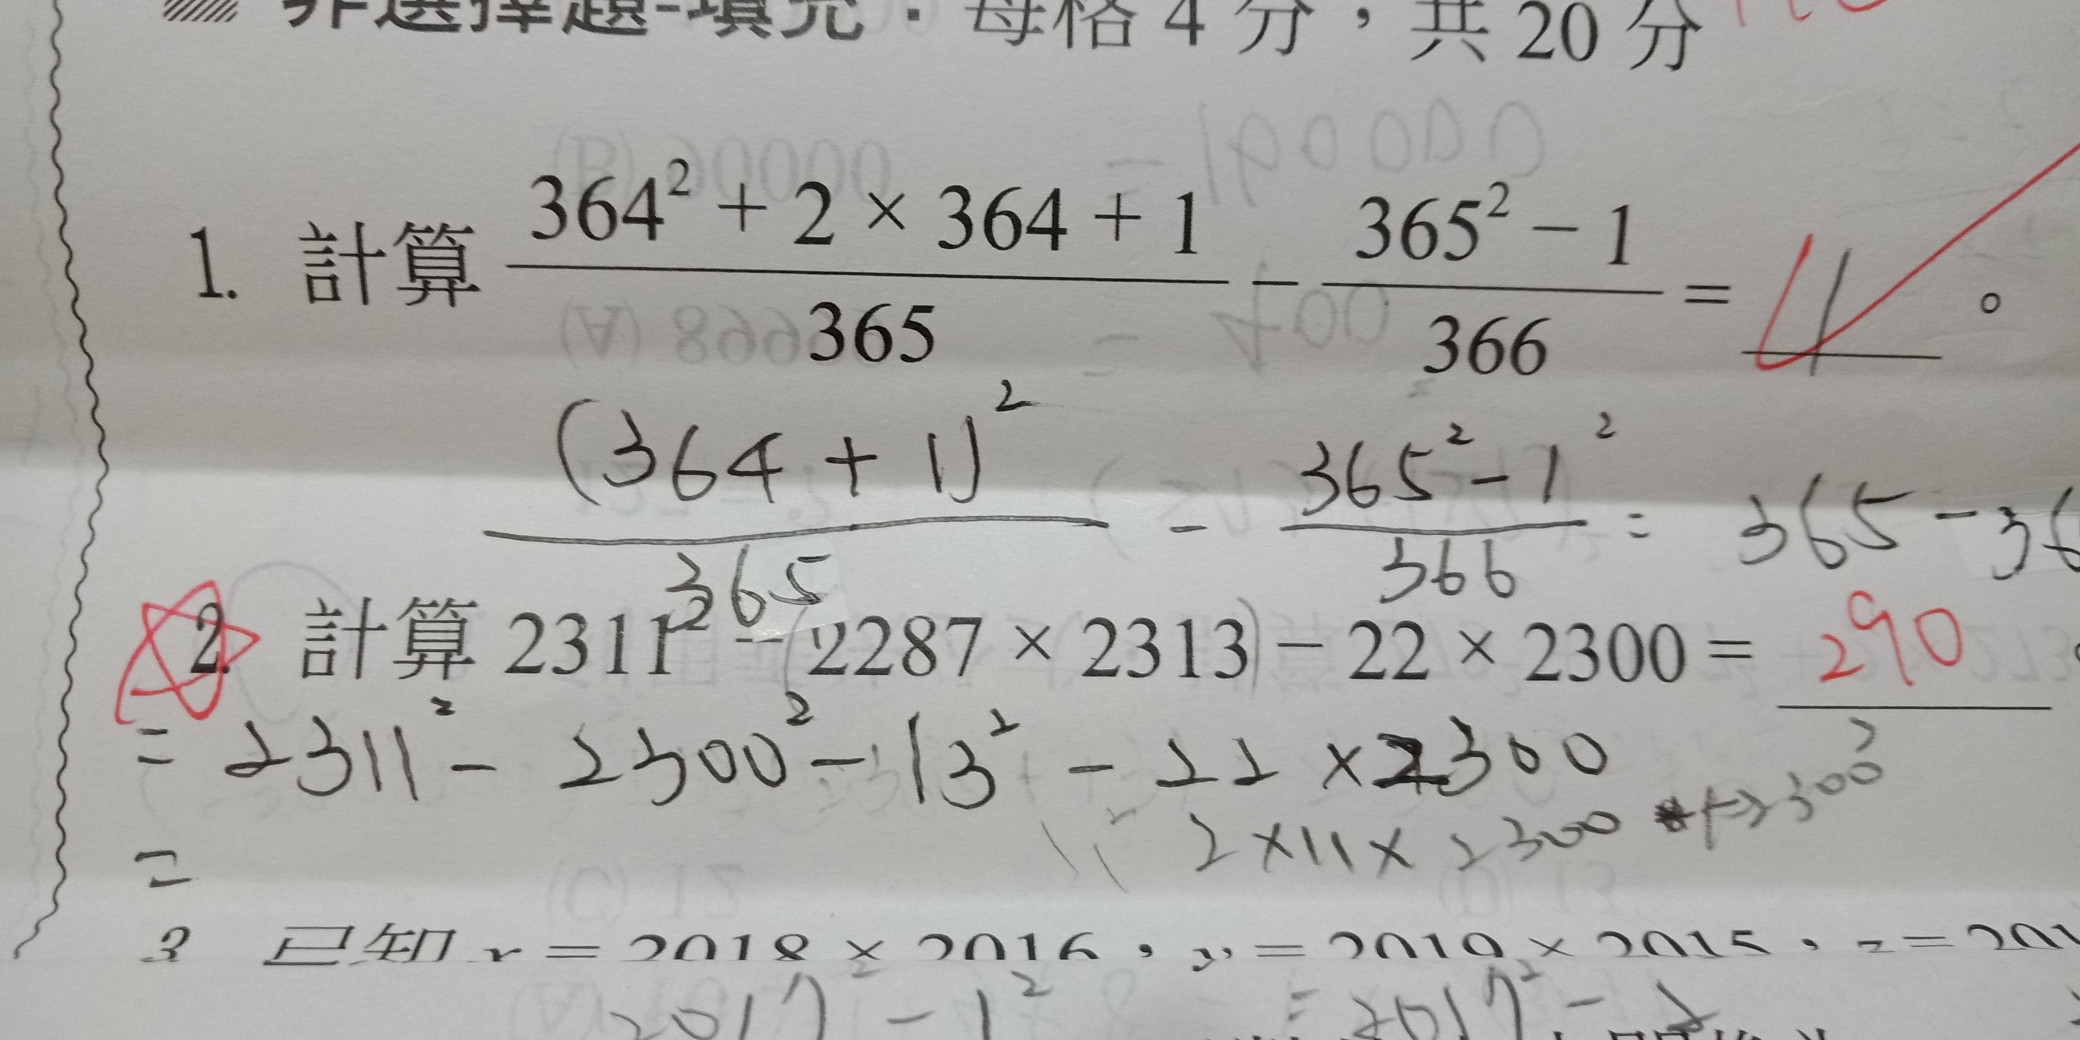 非選擇題-填充：每格 4 分，共 20 分
1. 計算 (364² + 2 × 364 + 1)/365 − (365² − 1)/366 = 1 。
(364 + 1)²/365 − (365² − 1²)/366 = 365 − 36
2. 計算 2311² − (2287 × 2313) − 22 × 2300 = 290
= 2311² − 2300² − 13² − 22 × 2300
11² 2 × 11 × 2300 + 2300²
=
3 已知 x = 2018 × 2016，y = 2019 × 2015，z = 201
2017² − 1² = 2017² − 2